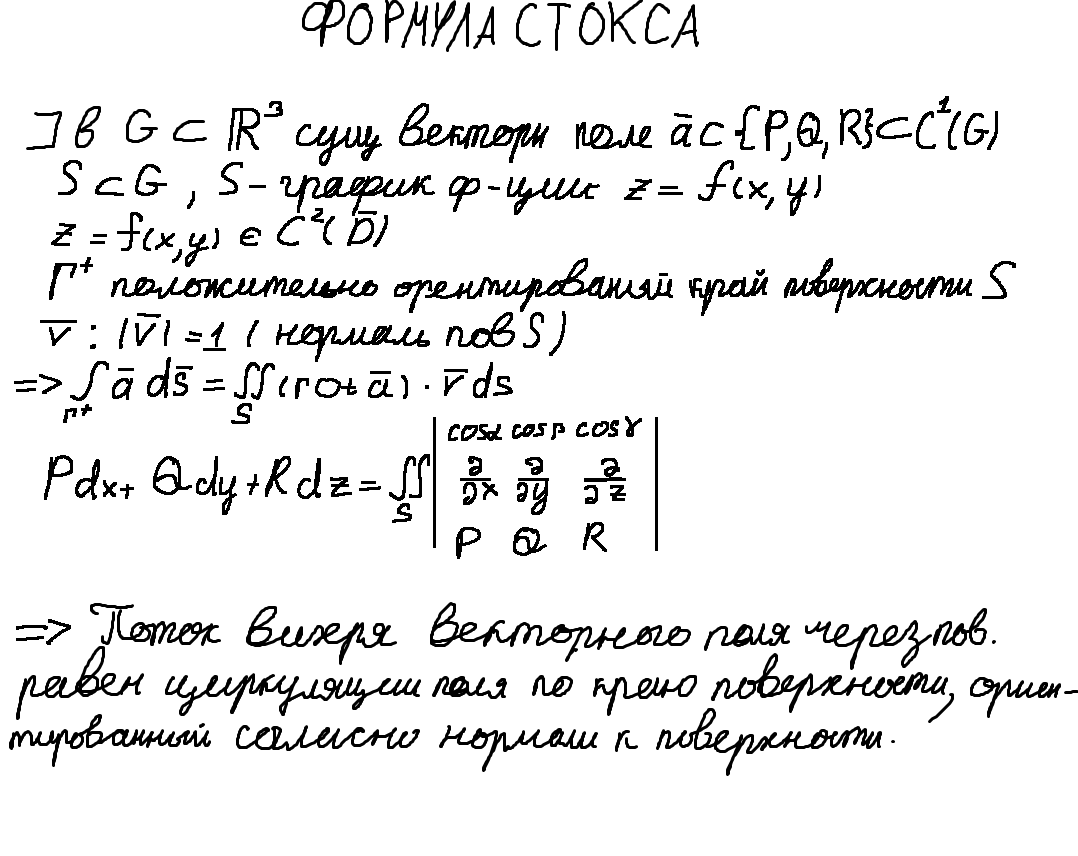 ФОРМУЛА СТОКСА
∃ в G ⊂ ℝ³ сущ векторн поле ā ⊂ {P,Q,R} ⊂ C¹(G)
S ⊂ G , S - график ф-ции z = f(x, y)
z = f(x,y) ∈ C²(D̄)
Г⁺ положительно орентированный край поверхности S
v̅ : |v̅| = 1 ( нормаль пов S )
=> ∫_Г⁺ ā ds̄ = ∬_S (rot ā) · v̅ ds
Pdx + Qdy + Rdz = ∬_S | cosα cosβ cosγ |
| ∂/∂x ∂/∂y ∂/∂z |
| P Q R |
=> Поток вихря векторного поля через пов.
равен циркуляции поля по краю поверхности, ориен-
тированный согласно нормали к поверхности.